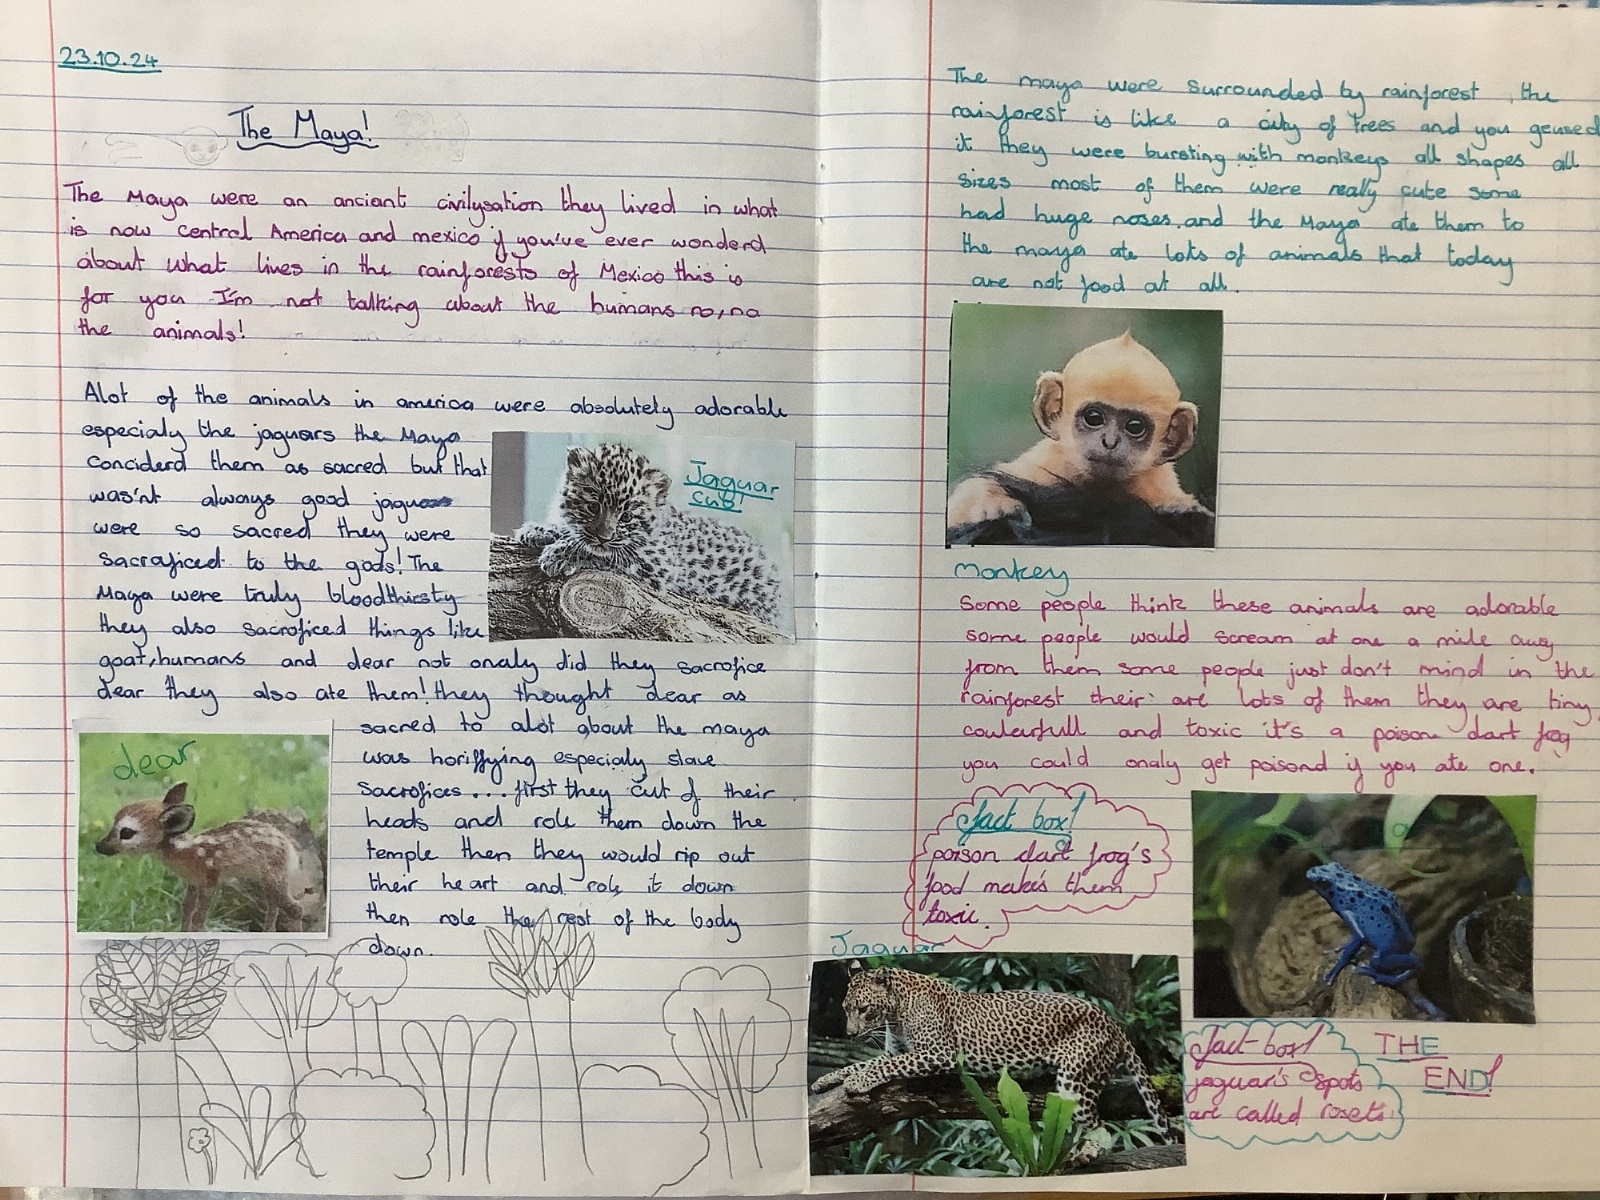 23.10.24
The Maya!
The Maya were an anciant civilysation they lived in what
is now central America and mexico if you've ever wonderd
about what lives in the rainforests of Mexico this is
for you I'm not talking about the humans no, no
the animals!
Alot of the animals in america were absolutely adorable
especialy the jaguars the Maya
conciderd them as sacred but that
was'nt always good jaguars
were so sacred they were
sacraficed to the gods! The
Maya were truly bloodthirsty
they also sacroficed things like
goat, humans and dear not onaly did they sacrofice
dear they also ate them! they thought dear as
sacred to alot about the maya
was horiffying especialy slave
sacrofices... first they cut of their
heads and role them down the
temple then they would rip out
their heart and role it down
then role the rest of the body
down.
Jaguar
cub!
dear
The maya were surrounded by rainforest, the
rainforest is like a city of trees and you geused
it they were bursting with monkeys all shapes all
sizes most of them were really cute some
had huge noses, and the Maya ate them to
the maya ate lots of animals that today
are not food at all.
monkey
Some people think these animals are adorable
some people would scream at one a mile away
from them some people just don't mind in the
rainforest their are lots of them they are tiny,
coulerfull and toxic it's a poison dart frog
you could onaly get poisond if you ate one.
fact box!
poison dart frog's
food makes them
toxic.
Jaguar
fact box!
jaguar's spots
are called rosets.
THE
END!